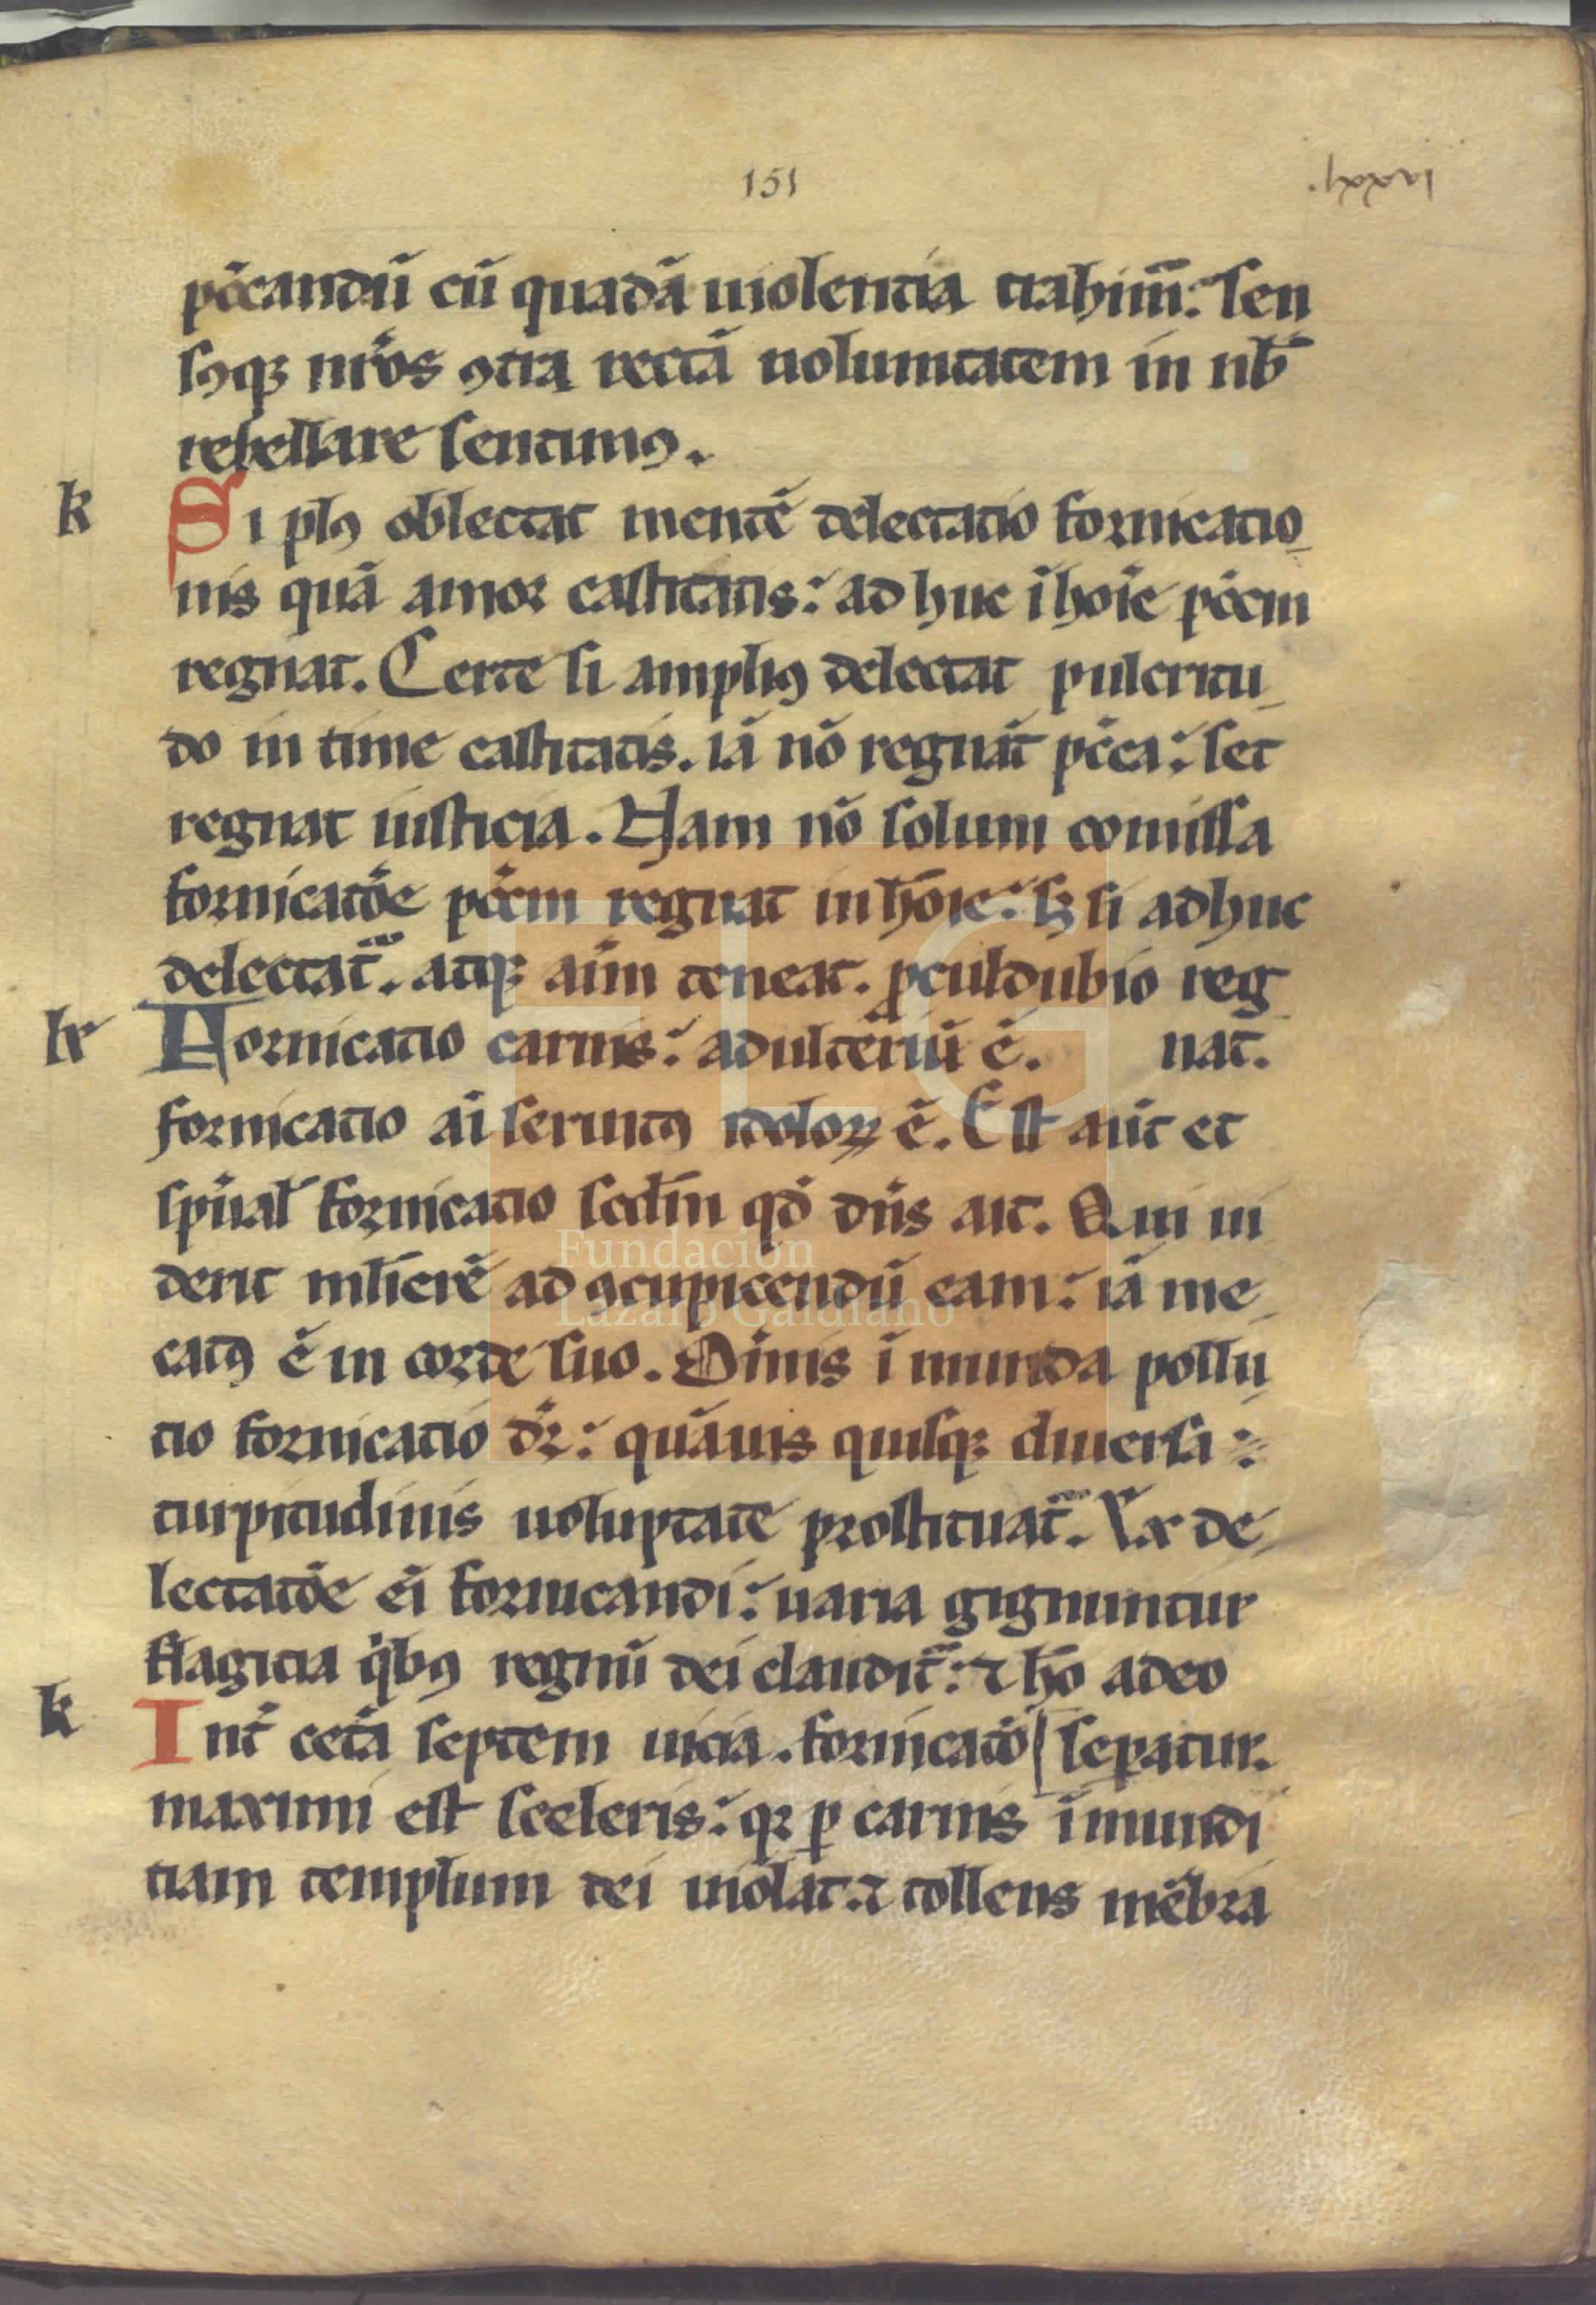 151
lxxxxj.
pc̄candū cū quadā uiolentia trahim̄: sen
sꝯqꝫ nr̄os ꝯtra rectā uoluntatem in nb̄
rebellare sentimꝯ.
k
Si plꝯ oblectat mentē delectatio fornicatio
nis quā amor castitatis: ad huc ī hoīe pc̄cm
regnat. Certe si ampliꝯ delectat pulcritu
do in time castitatis. iā nō regnāt pc̄ca: set
regnat iusticia. Nam nō solum comissa
fornicatōe pc̄cm regnat in hōīe: sꝫ si adhuc
delectat᷑. atqꝫ aīm teneat. ꝓculdubio reg
nat.
k
Fornicatio carnis: adulteriū ē.
fornicatio aī seruitꝯ idoloꝝ ē. Est aut̄ et
sp̄ual̄ fornicatio scd̄m qd̄ dn̄s ait. Qui ui
derit mlīerē ad ꝯcupiscendū eam: iā me
catꝯ ē in corde suo. Om̄is ī munda pollu
tio fornicatio dr̄: quāuis quisqꝫ diuersa
turpitudinis uoluptate prostituat᷑. Ex de
lectatōe eī fornicandi: uaria gignuntur
flagitia qͥbꝯ regnū dei claudit᷑: ⁊ hō a deo
seꝑatur.
k
Int̄ cet̄a septem uicia. fornicatō
maximi est sceleris: qꝛ ꝑ carnis īmundi
tiam templum dei uiolat. ⁊ tollens mēbra
FLG
Fundación
Lázaro Galdiano